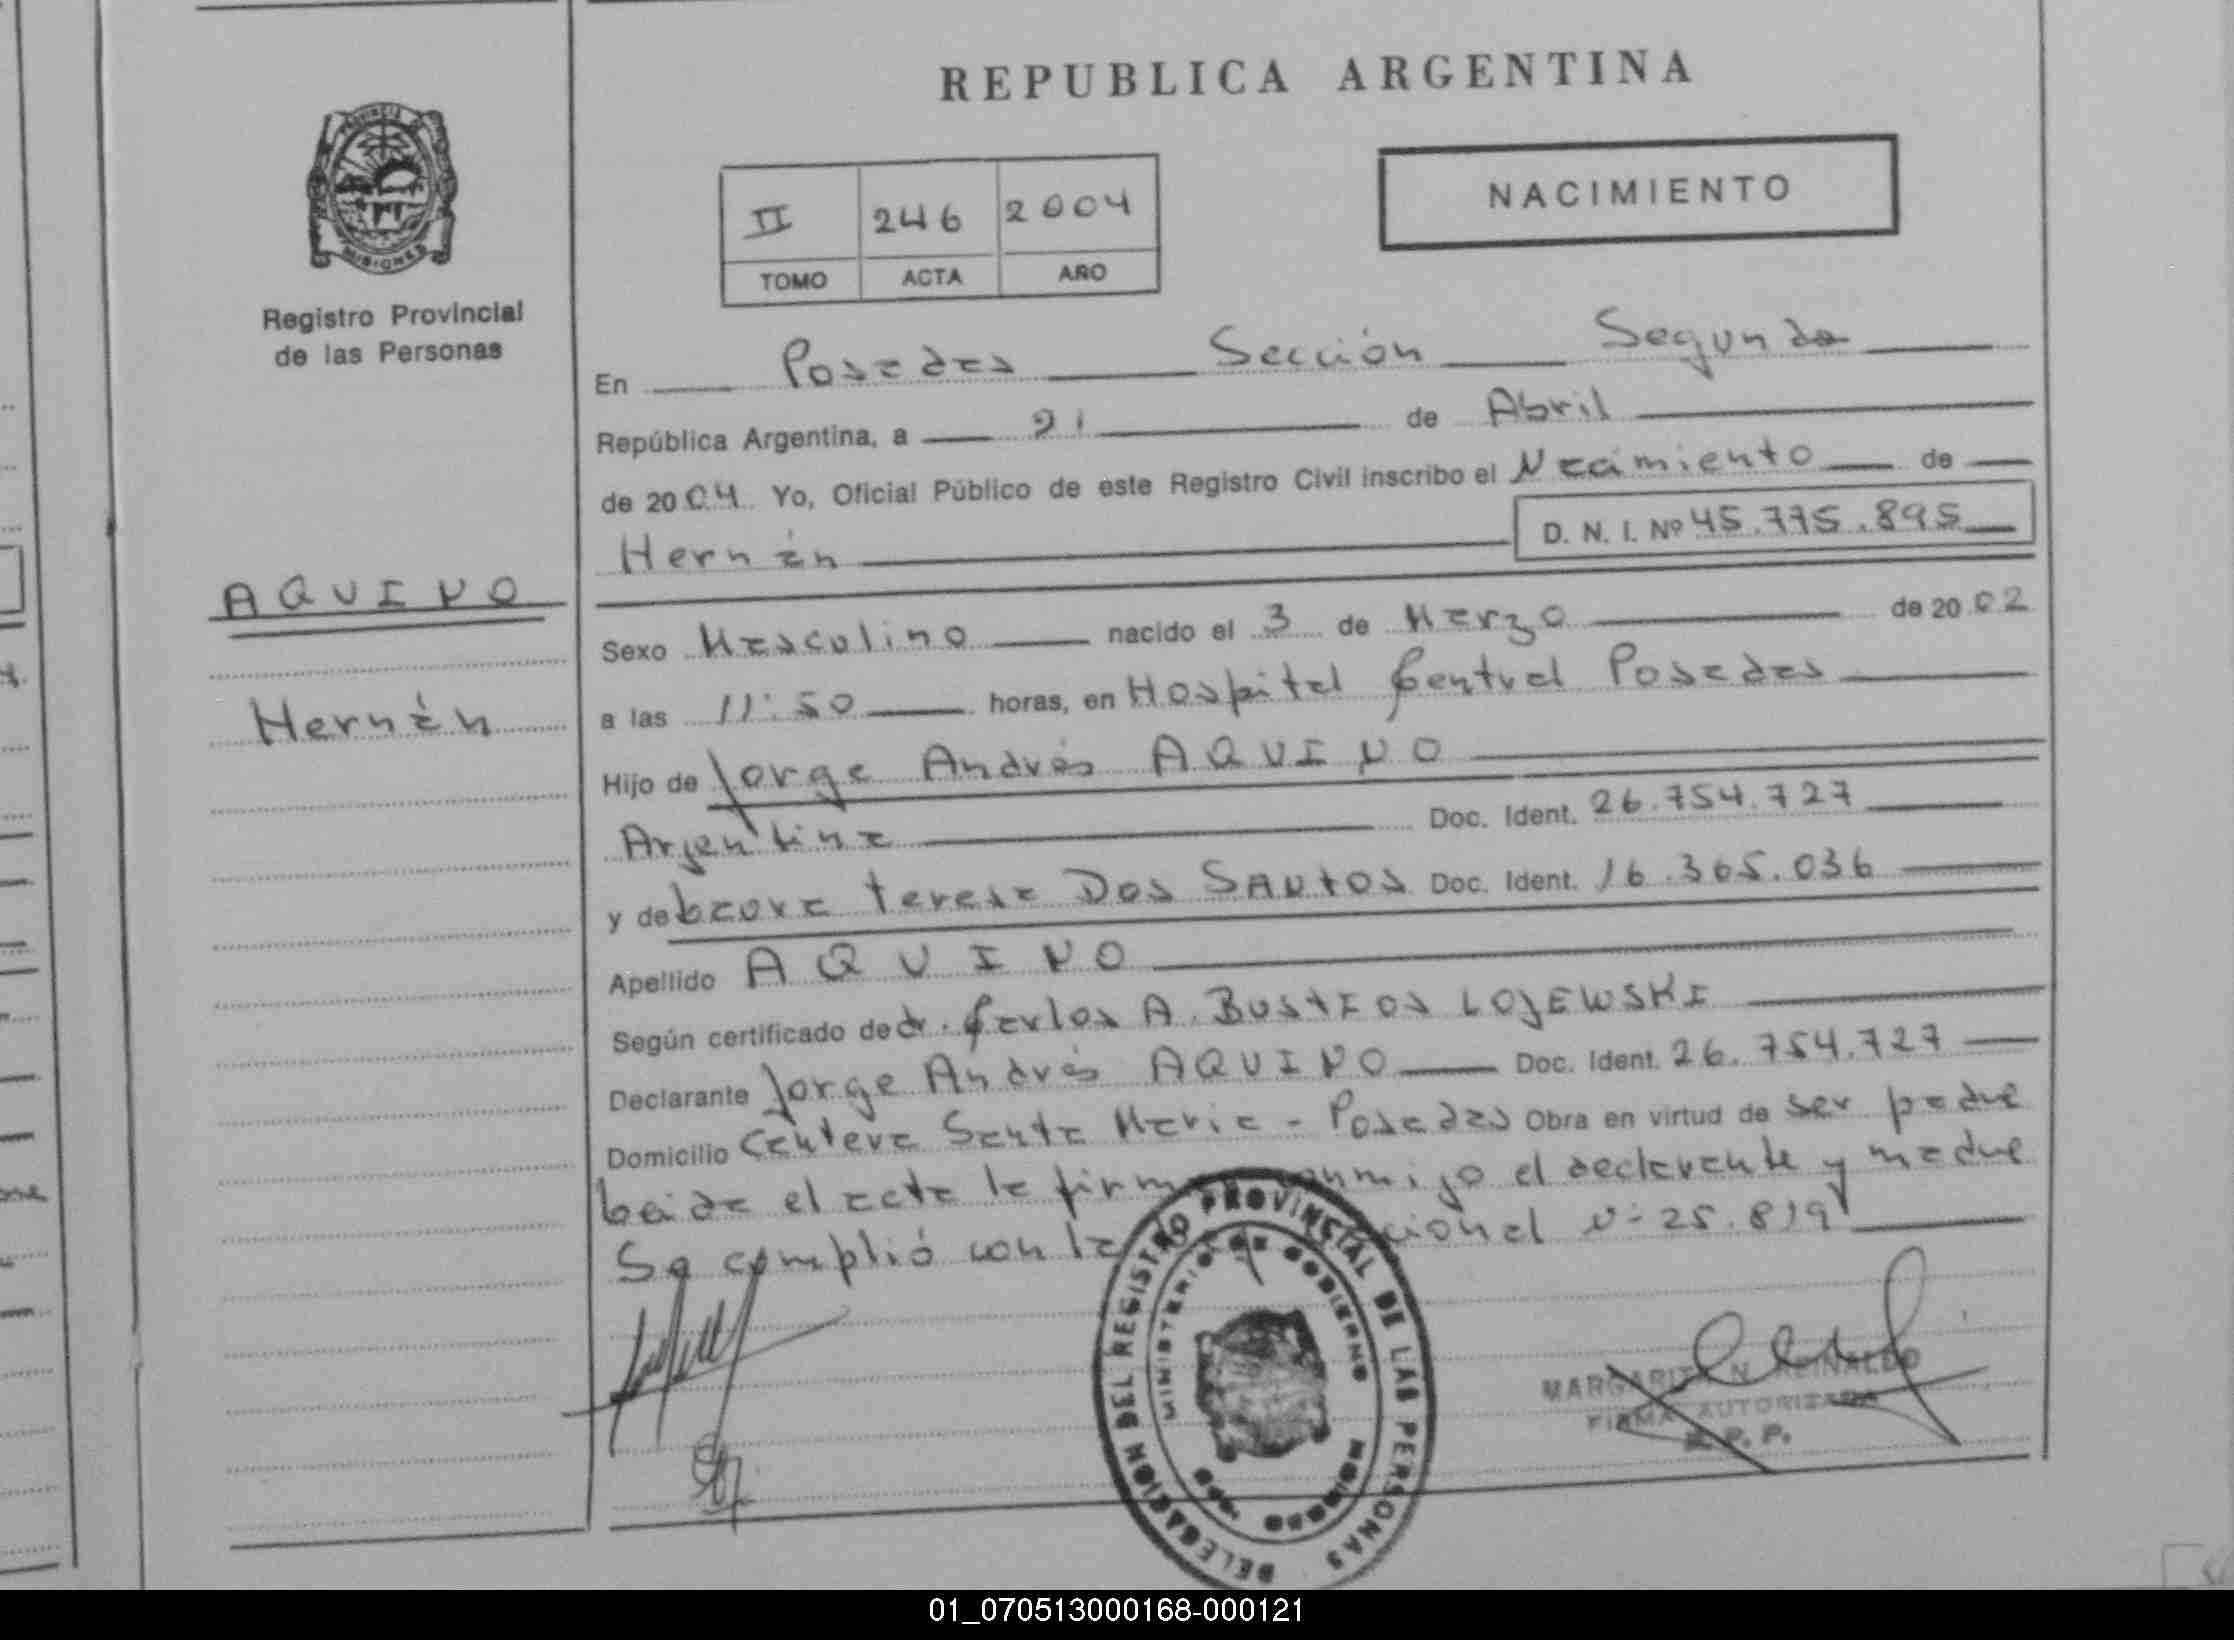 REPUBLICA ARGENTINA
PROVINCIA DE MISIONES
Registro Provincial
de las Personas
NACIMIENTO
II 246 2004
TOMO ACTA AÑO
En Posadas Sección Segunda
República Argentina, a 21 de Abril
de 2004 Yo, Oficial Público de este Registro Civil inscribo el Nacimiento de
Hernán D. N. I. Nº 45.775.895
AQUINO
Hernán
Sexo Masculino nacido el 3 de Marzo de 2002
a las 11:50 horas, en Hospital Central Posadas
Hijo de Jorge Andrés AQUINO
Argentina Doc. Ident. 26.754.727
y de Laura Teresa DOS SANTOS Doc. Ident. 16.365.036
Apellido AQUINO
Según certificado de dr. Carlos A. BUSTFOS LOJEWSKI
Declarante Jorge Andrés AQUINO Doc. Ident. 26.754.727
Domicilio Cantera Santa Maria - Posadas Obra en virtud de ser padre
Leida el acta la firma conmigo el declarante y madre
Se complió con la cional Nº 25.819
DELEGACION DEL REGISTRO PROVINCIAL DE LAS PERSONAS
MINISTERIO DE GOBIERNO
MARGARITA N. REINALDO
FIRMA AUTORIZADA
R.P.P.
01_070513000168-000121